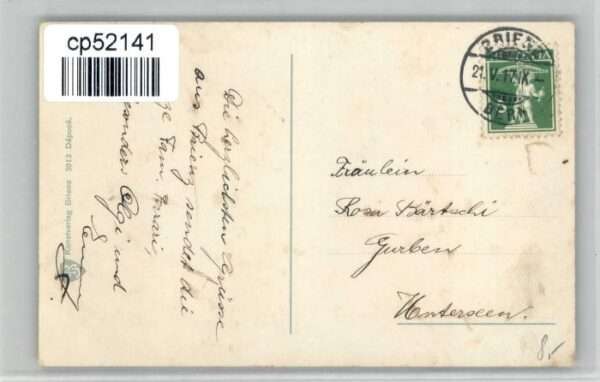 cp52141
Die herzlichsten Grüsse
aus Brienz sendet die
Fam.
Olgi und
Kunstverlag Brienz 3013 Déposé.
BRIENZ
21.V.17.IX
BERN
Fräulein
Rosa Bärtschi
Gurben
Unterseen.
8.-